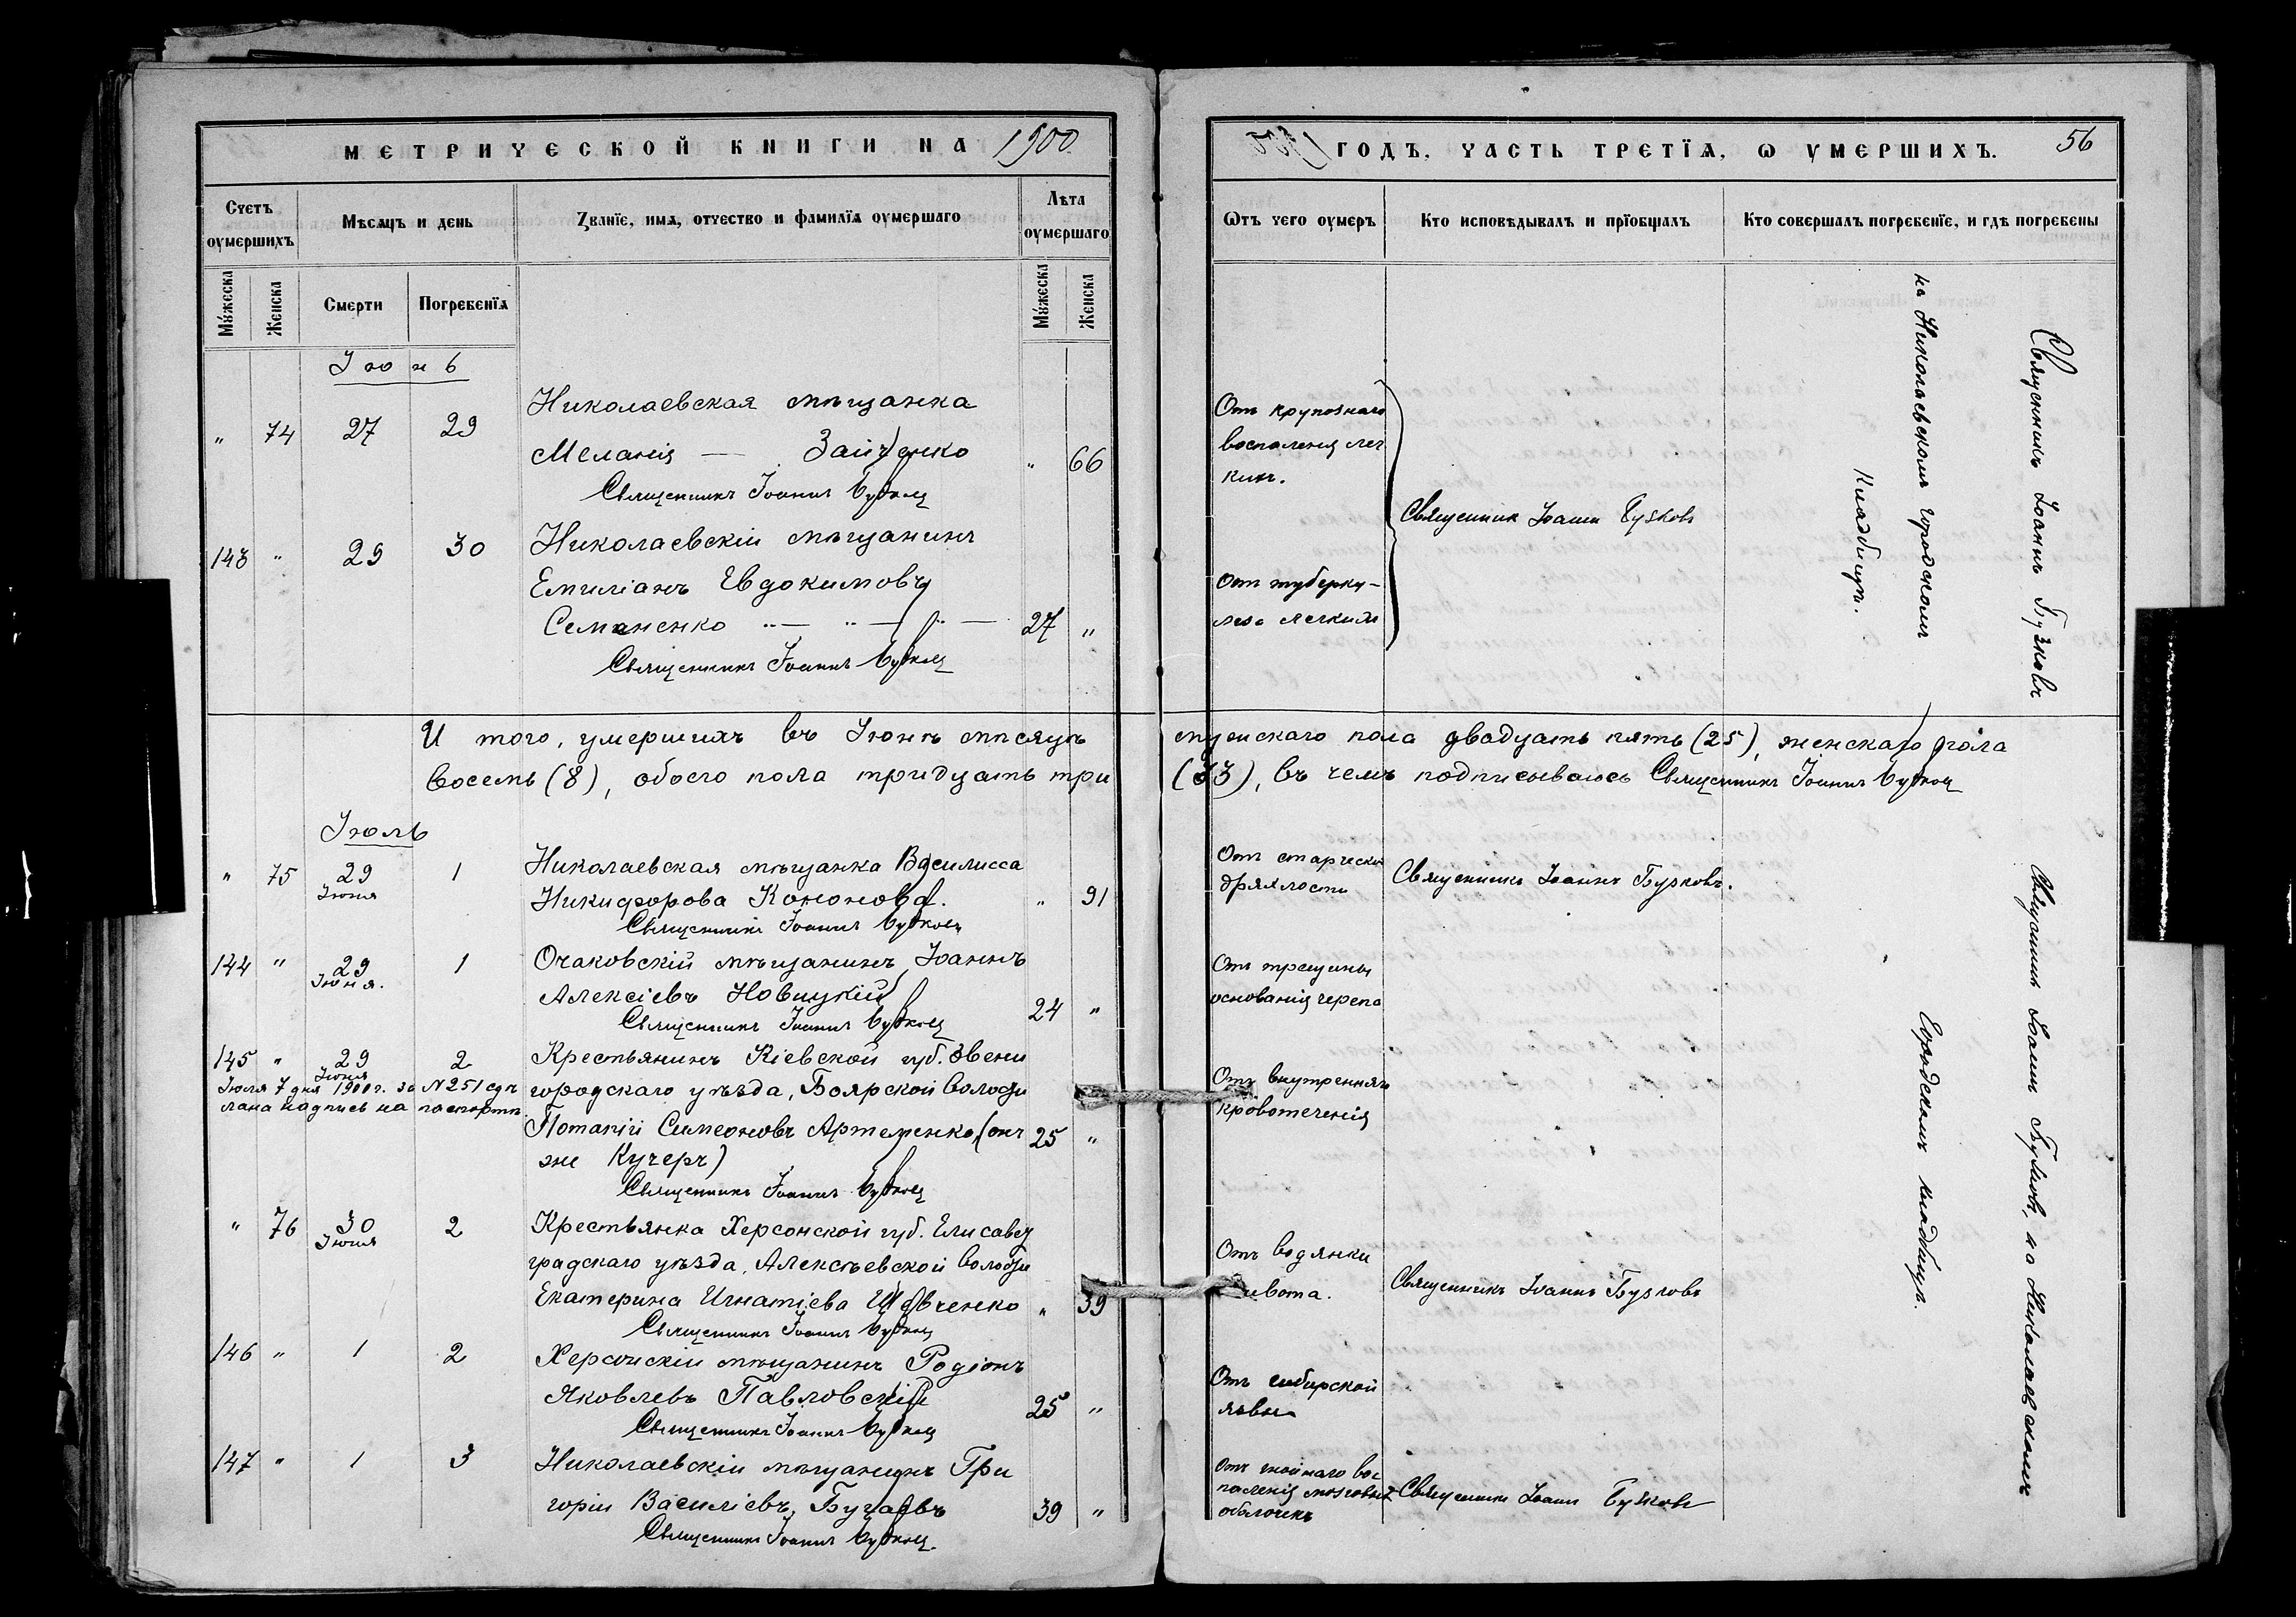 МЕТРИЧЕСКОЙ КНИГИ НА 1900
Счетъ оумершихъ
Мѣсяцъ и день
Званїе, имя, отчество и фамилїя оумершаго
Лѣта оумершаго
Мужеска
Женска
Смерти
Погребенїя
Мужеска
Женска
Іюнь
" 74 27 29 Николаевская мѣщанка
Меланія — Зайченко " 66
Священникъ Іоаннъ
143 " 29 30 Николаевскій мѣщанинъ
Емиліанъ Евдокимовъ
Семаненко 27 "
Священникъ Іоаннъ
И того, умершихъ въ Іюнѣ мѣсяцѣ
восемь (8), обоего пола тридцать три
Іюль
" 75 29 Іюня 1 Николаевская мѣщанка Василисса
Никифорова Кононова. " 91
Священникъ Іоаннъ
144 " 29 Іюня. 1 Очаковскій мѣщанинъ Іоаннъ
Алексіевъ Новицкій 24 "
Священникъ Іоаннъ
145 " 29 Іюня 2 Крестьянинъ Кіевской губ. Звени
Іюля 7 дня 1900 г. за №251 сдѣ
лана надпись на паспортѣ.
городскаго уѣзда, Боярской волости
Потапій Симеоновъ Артеменко, (онъ 25 "
же Кучеръ)
Священникъ Іоаннъ
" 76 30 Іюня 2 Крестьянка Херсонской губ. Елисавет
градскаго уѣзда, Алексѣевской волости
Екатерина Игнатіева Шевченко " 39
Священникъ Іоаннъ
146 " 1 2 Херсонскій мѣщанинъ Родіонъ
Яковлевъ Павловскій 25 "
Священникъ Іоаннъ
147 " 1 3 Николаевскій мѣщанинъ Гри
горій Василіевъ Бугаевъ 39 "
Священникъ Іоаннъ
ГОДЪ, ЧАСТЬ ТРЕТЇЯ, Ѡ УМЕРШИХЪ. 56
Ѿтъ чего оумеръ
Кто исповѣдывалъ и прїобщалъ
Кто совершалъ погребенїе, и гдѣ погребены
Отъ крупознаго
воспаленія лег
кихъ.
Священникъ Іоаннъ Бузковъ
Отъ туберку-
леза легкихъ
Священникъ Іоаннъ Бузковъ
на Николаевскомъ городскомъ
кладбищѣ.
мужскаго пола двадцать пять (25), женскаго пола
(33), въ чемъ подписываюсь Священникъ Іоаннъ
Отъ старческой
дряхлости
Священникъ Іоаннъ Бузковъ.
Отъ трещины
основанія черепа
Отъ внутренняго
кровотеченія
Отъ водянки
живота.
Священникъ Іоаннъ Бузковъ
Отъ сибирской
язвы
Отъ гнойнаго вос
паленія мозговыхъ
оболочекъ
Священникъ Іоаннъ Бузковъ
Священникъ Іоаннъ Бузковъ, на Николаевскомъ
Городскомъ кладбищѣ.